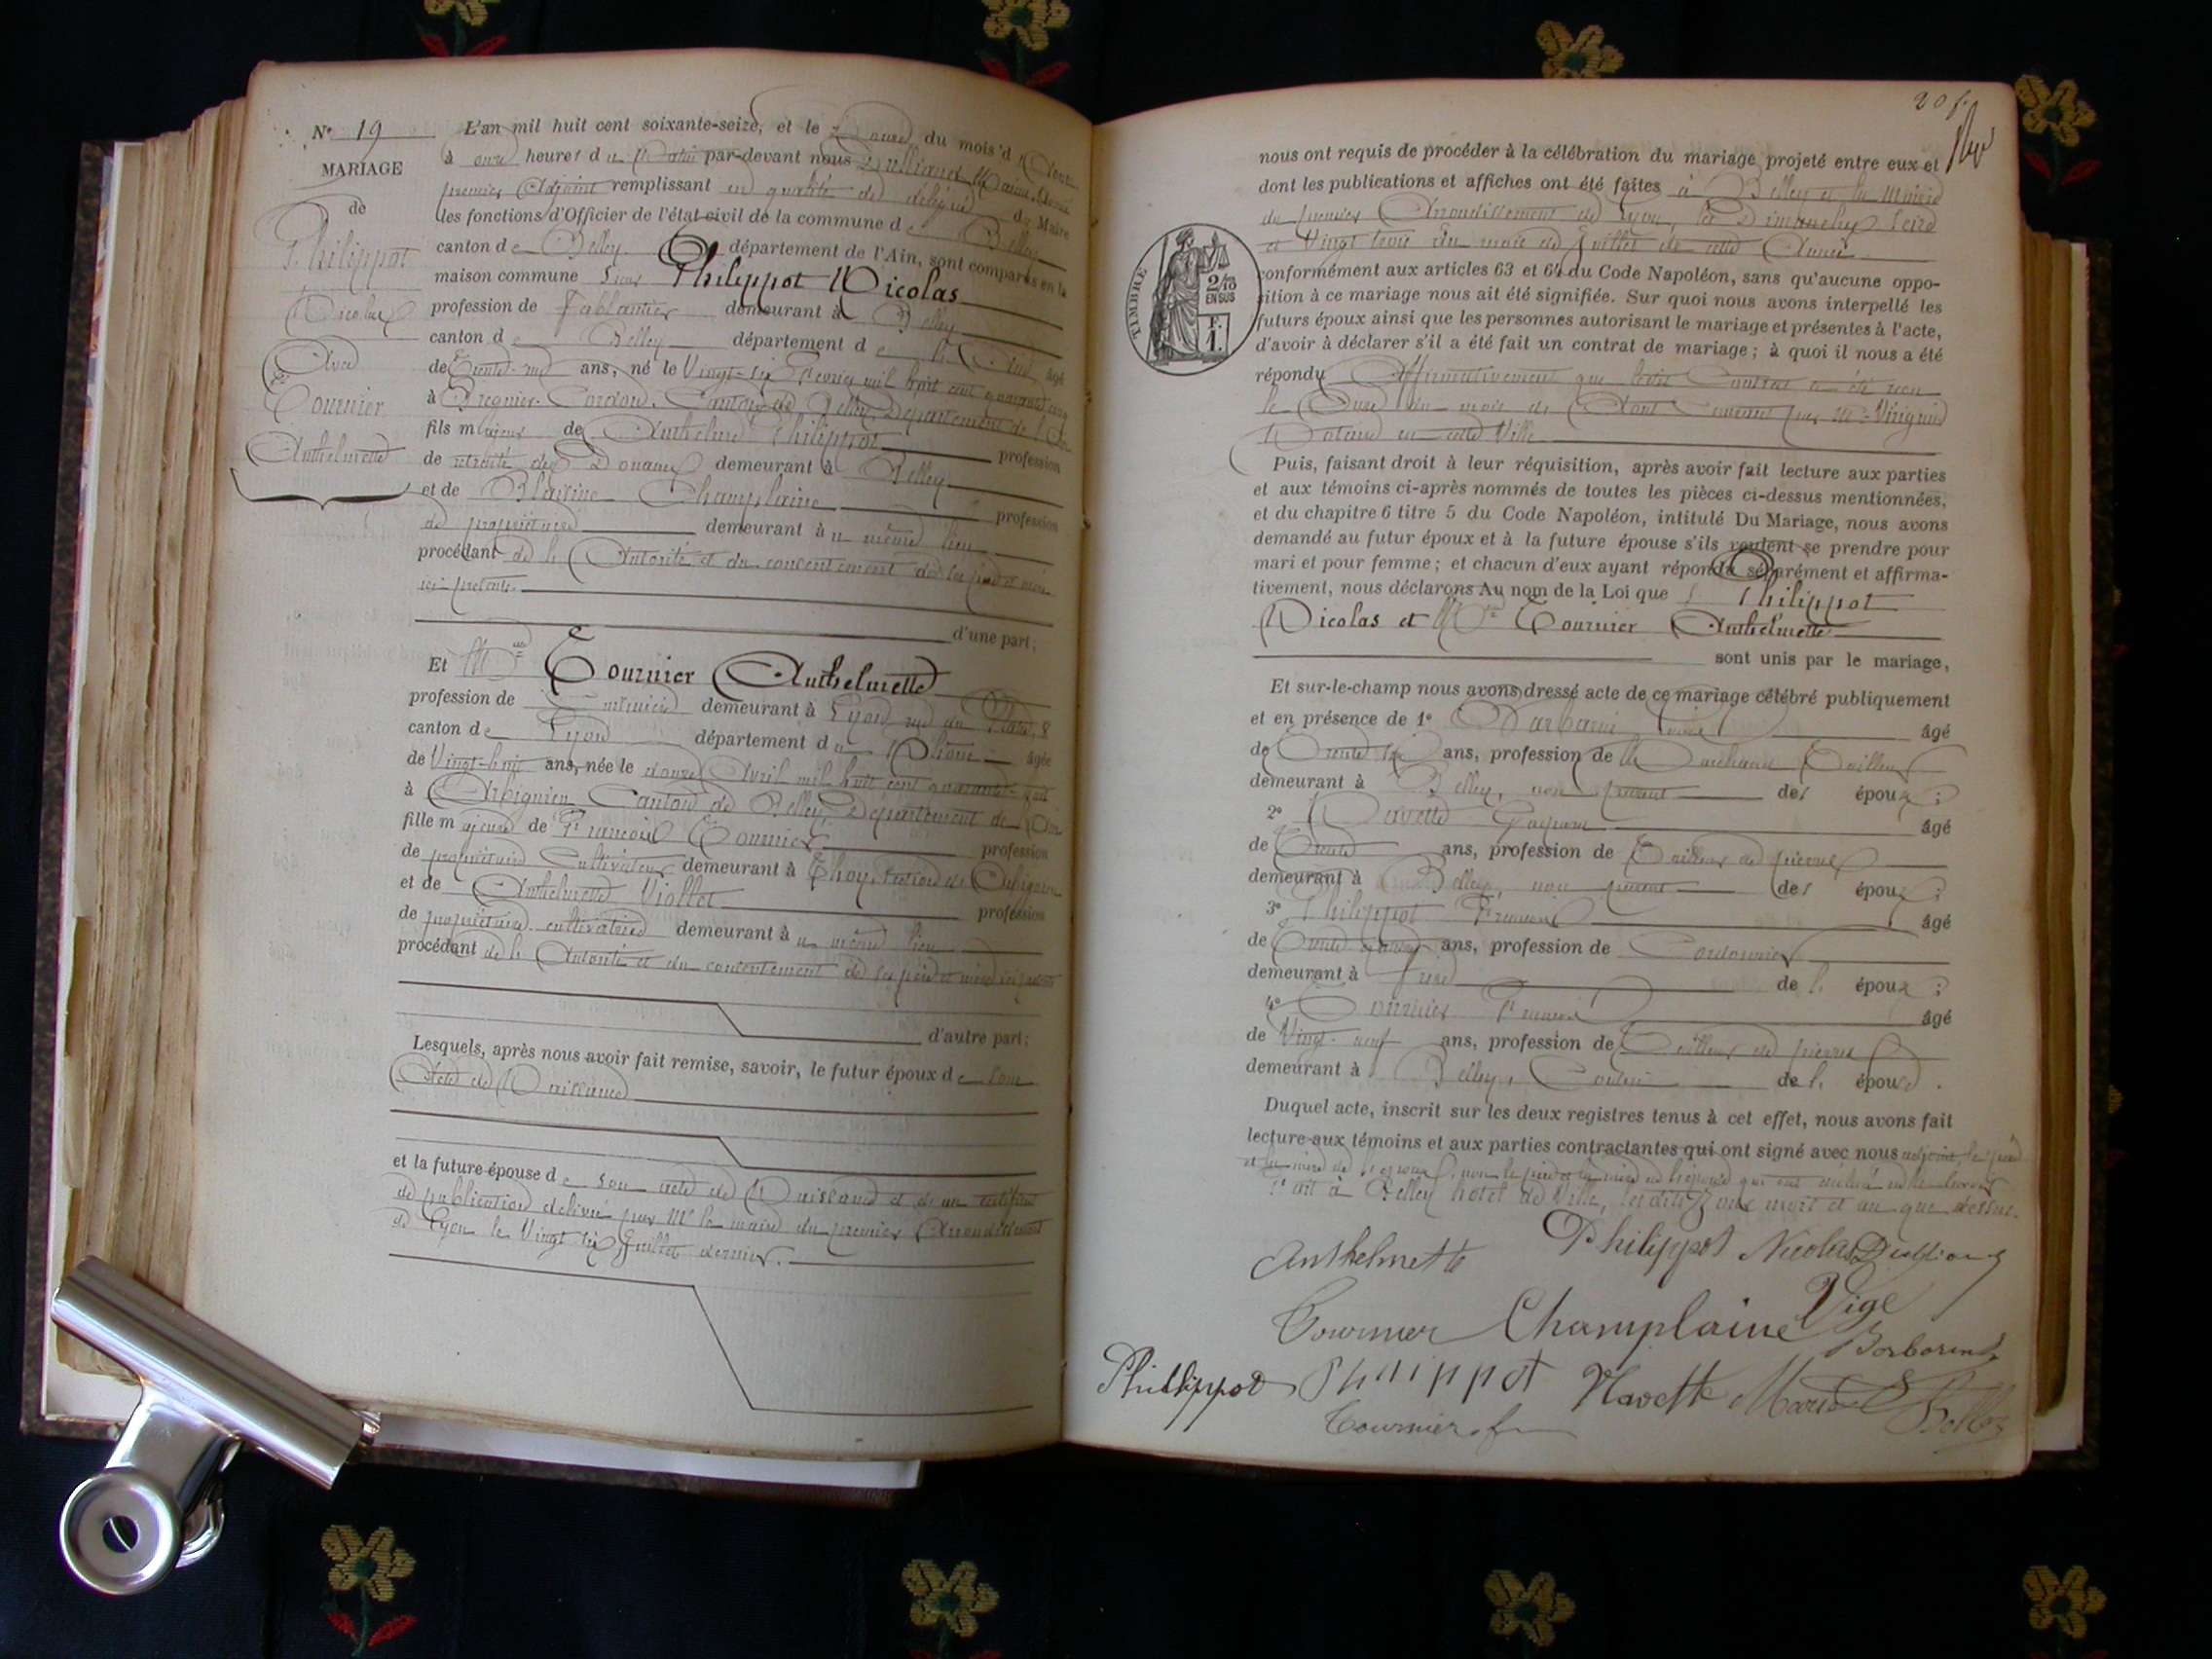 N° 19
MARIAGE
de
Philippot
Nicolas
Avec
Tournier
Anthelmette
L'an mil huit cent soixante-seize, et le Douze du mois d'Août
à onze heures du Matin par-devant nous
premier Adjoint remplissant en qualité de délégué du Maire
les fonctions d'Officier de l'état civil de la commune de Belley
canton de Belley département de l'Ain, sont comparus en la
maison commune Philippot Nicolas
profession de Ferblantier demeurant à Belley
canton de Belley département de l'Ain âgé
de Trente-un ans, né le Vingt-six Février mil huit cent quarante cinq
à Bregnier-Cordon, Canton de Belley, Département de l'Ain
fils majeur de Anthelme Philippot profession
de retraité des Douanes demeurant à Belley
et de Champlaine profession
de propriétaire demeurant à u même lieu
procédant de l'Autorité et du consentement de ses père et mère
ici présents.
d'une part;
Et Mlle Tournier Anthelmette
profession de demeurant à Lyon rue du Plâtre, 8
canton de Lyon département du Rhône âgée
de Vingt-huit ans, née le douze Avril mil huit cent quarante-huit
à Arbignieu Canton de Belley, Département de l'Ain
fille majeure de François Tournier profession
de propriétaire Cultivateur demeurant à Thoy, section de Arbignieu
et de Anthelmette Viollet profession
de propriétaire cultivatrice demeurant à u même lieu
procédant de l'Autorité et du consentement de ses père et mère ici présents
d'autre part;
Lesquels, après nous avoir fait remise, savoir, le futur époux de son
Acte de Naissance
et la future épouse de son acte de Naissance et de un certificat
de publication délivré par Mr le maire du premier Arrondissement
de Lyon le Vingt six Juillet dernier.
20
nous ont requis de procéder à la célébration du mariage projeté entre eux et
dont les publications et affiches ont été faites à Belley et la Mairie
du premier Arrondissement de Lyon, les Dimanches Seize
et Vingt trois du mois de Juillet de cette Année
TIMBRE
2/10
EN SUS
F.
1.
conformément aux articles 63 et 64 du Code Napoléon, sans qu'aucune oppo-
sition à ce mariage nous ait été signifiée. Sur quoi nous avons interpellé les
futurs époux ainsi que les personnes autorisant le mariage et présentes à l'acte,
d'avoir à déclarer s'il a été fait un contrat de mariage; à quoi il nous a été
répondu Affirmativement que ledit Contrat a été reçu
le Onze du mois de Août Courant par Me
Notaire en cette Ville
Puis, faisant droit à leur réquisition, après avoir fait lecture aux parties
et aux témoins ci-après nommés de toutes les pièces ci-dessus mentionnées,
et du chapitre 6 titre 5 du Code Napoléon, intitulé Du Mariage, nous avons
demandé au futur époux et à la future épouse s'ils veulent se prendre pour
mari et pour femme; et chacun d'eux ayant répondu séparément et affirma-
tivement, nous déclarons Au nom de la Loi que Philippot
Nicolas et Mlle Tournier Anthelmette
sont unis par le mariage,
Et sur-le-champ nous avons dressé acte de ce mariage célébré publiquement
et en présence de 1° âgé
de Trente ans, profession de Marchand Tailleur
demeurant à Belley, non parent des époux;
2° Navette Gaspard âgé
de Trente ans, profession de Tailleur de pierres
demeurant à Belley, non parent des époux;
3° Philippot François âgé
de Trente ans, profession de Cordonnier
demeurant à de l' époux;
4° Tournier François âgé
de Vingt-neuf ans, profession de Tailleur de pierres
demeurant à Belley, Cousin de l' épouse.
Duquel acte, inscrit sur les deux registres tenus à cet effet, nous avons fait
lecture aux témoins et aux parties contractantes qui ont signé avec nous adjoint, le père
et la mère de l'époux, non le père et la mère de l'épouse qui ont
Fait à Belley hôtel de Ville, les dits jour mois et an que dessus.
Anthelmette Philippot Nicolas
Tournier Champlaine Vige
Borborini
Phillippot Philippot Navette
Tournier f